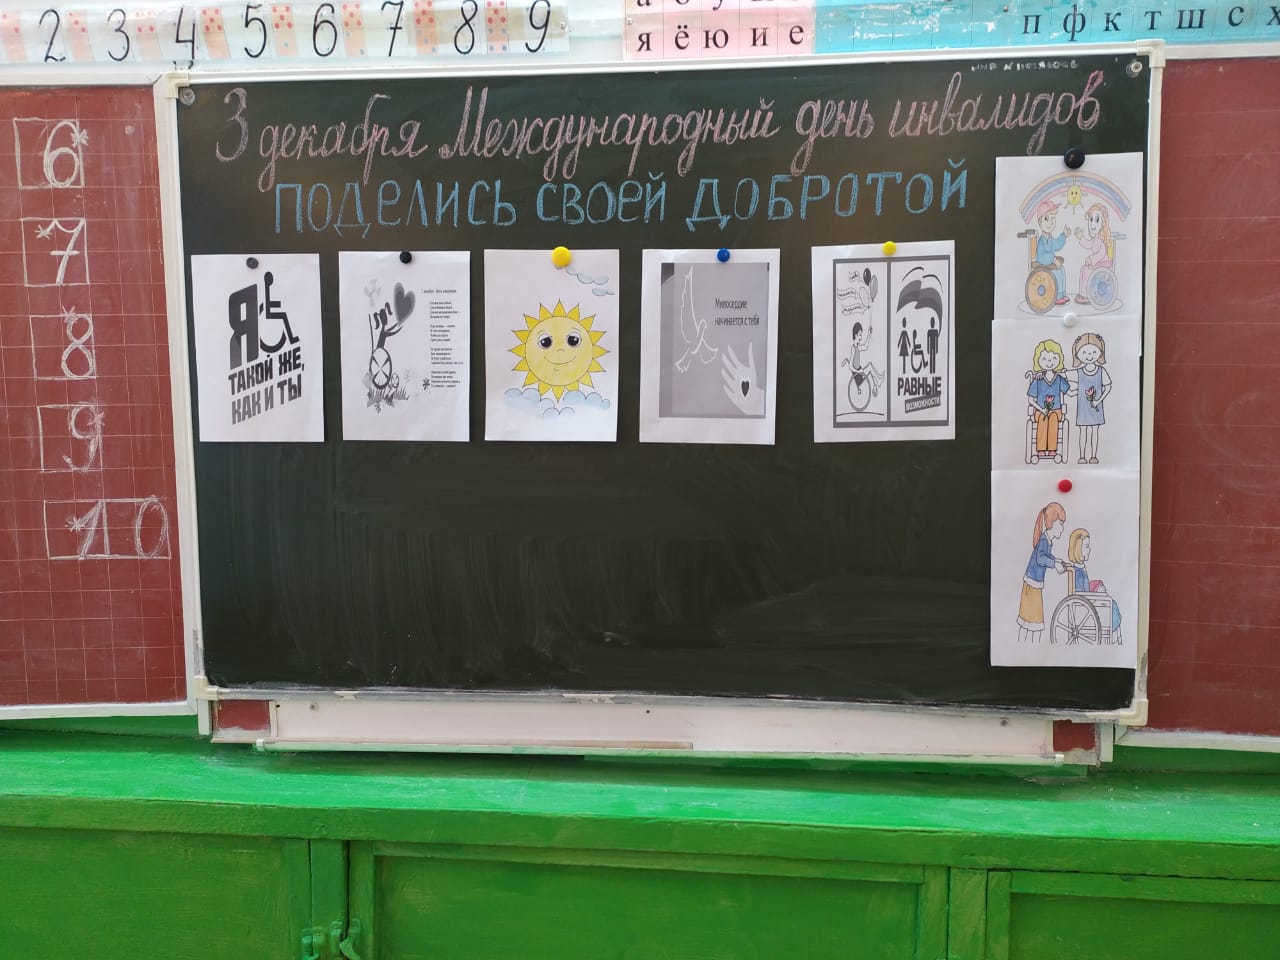 2 3 4 5 6 7 8 9
я ё ю и е
п ф к т ш с х
3 декабря Международный день инвалидов
ПОДЕЛИСЬ СВОЕЙ ДОБРОТОЙ
6
7
8
9
10
Я
ТАКОЙ ЖЕ,
КАК И ТЫ
Милосердие
начинается с тебя
РАВНЫЕ
ВОЗМОЖНОСТИ